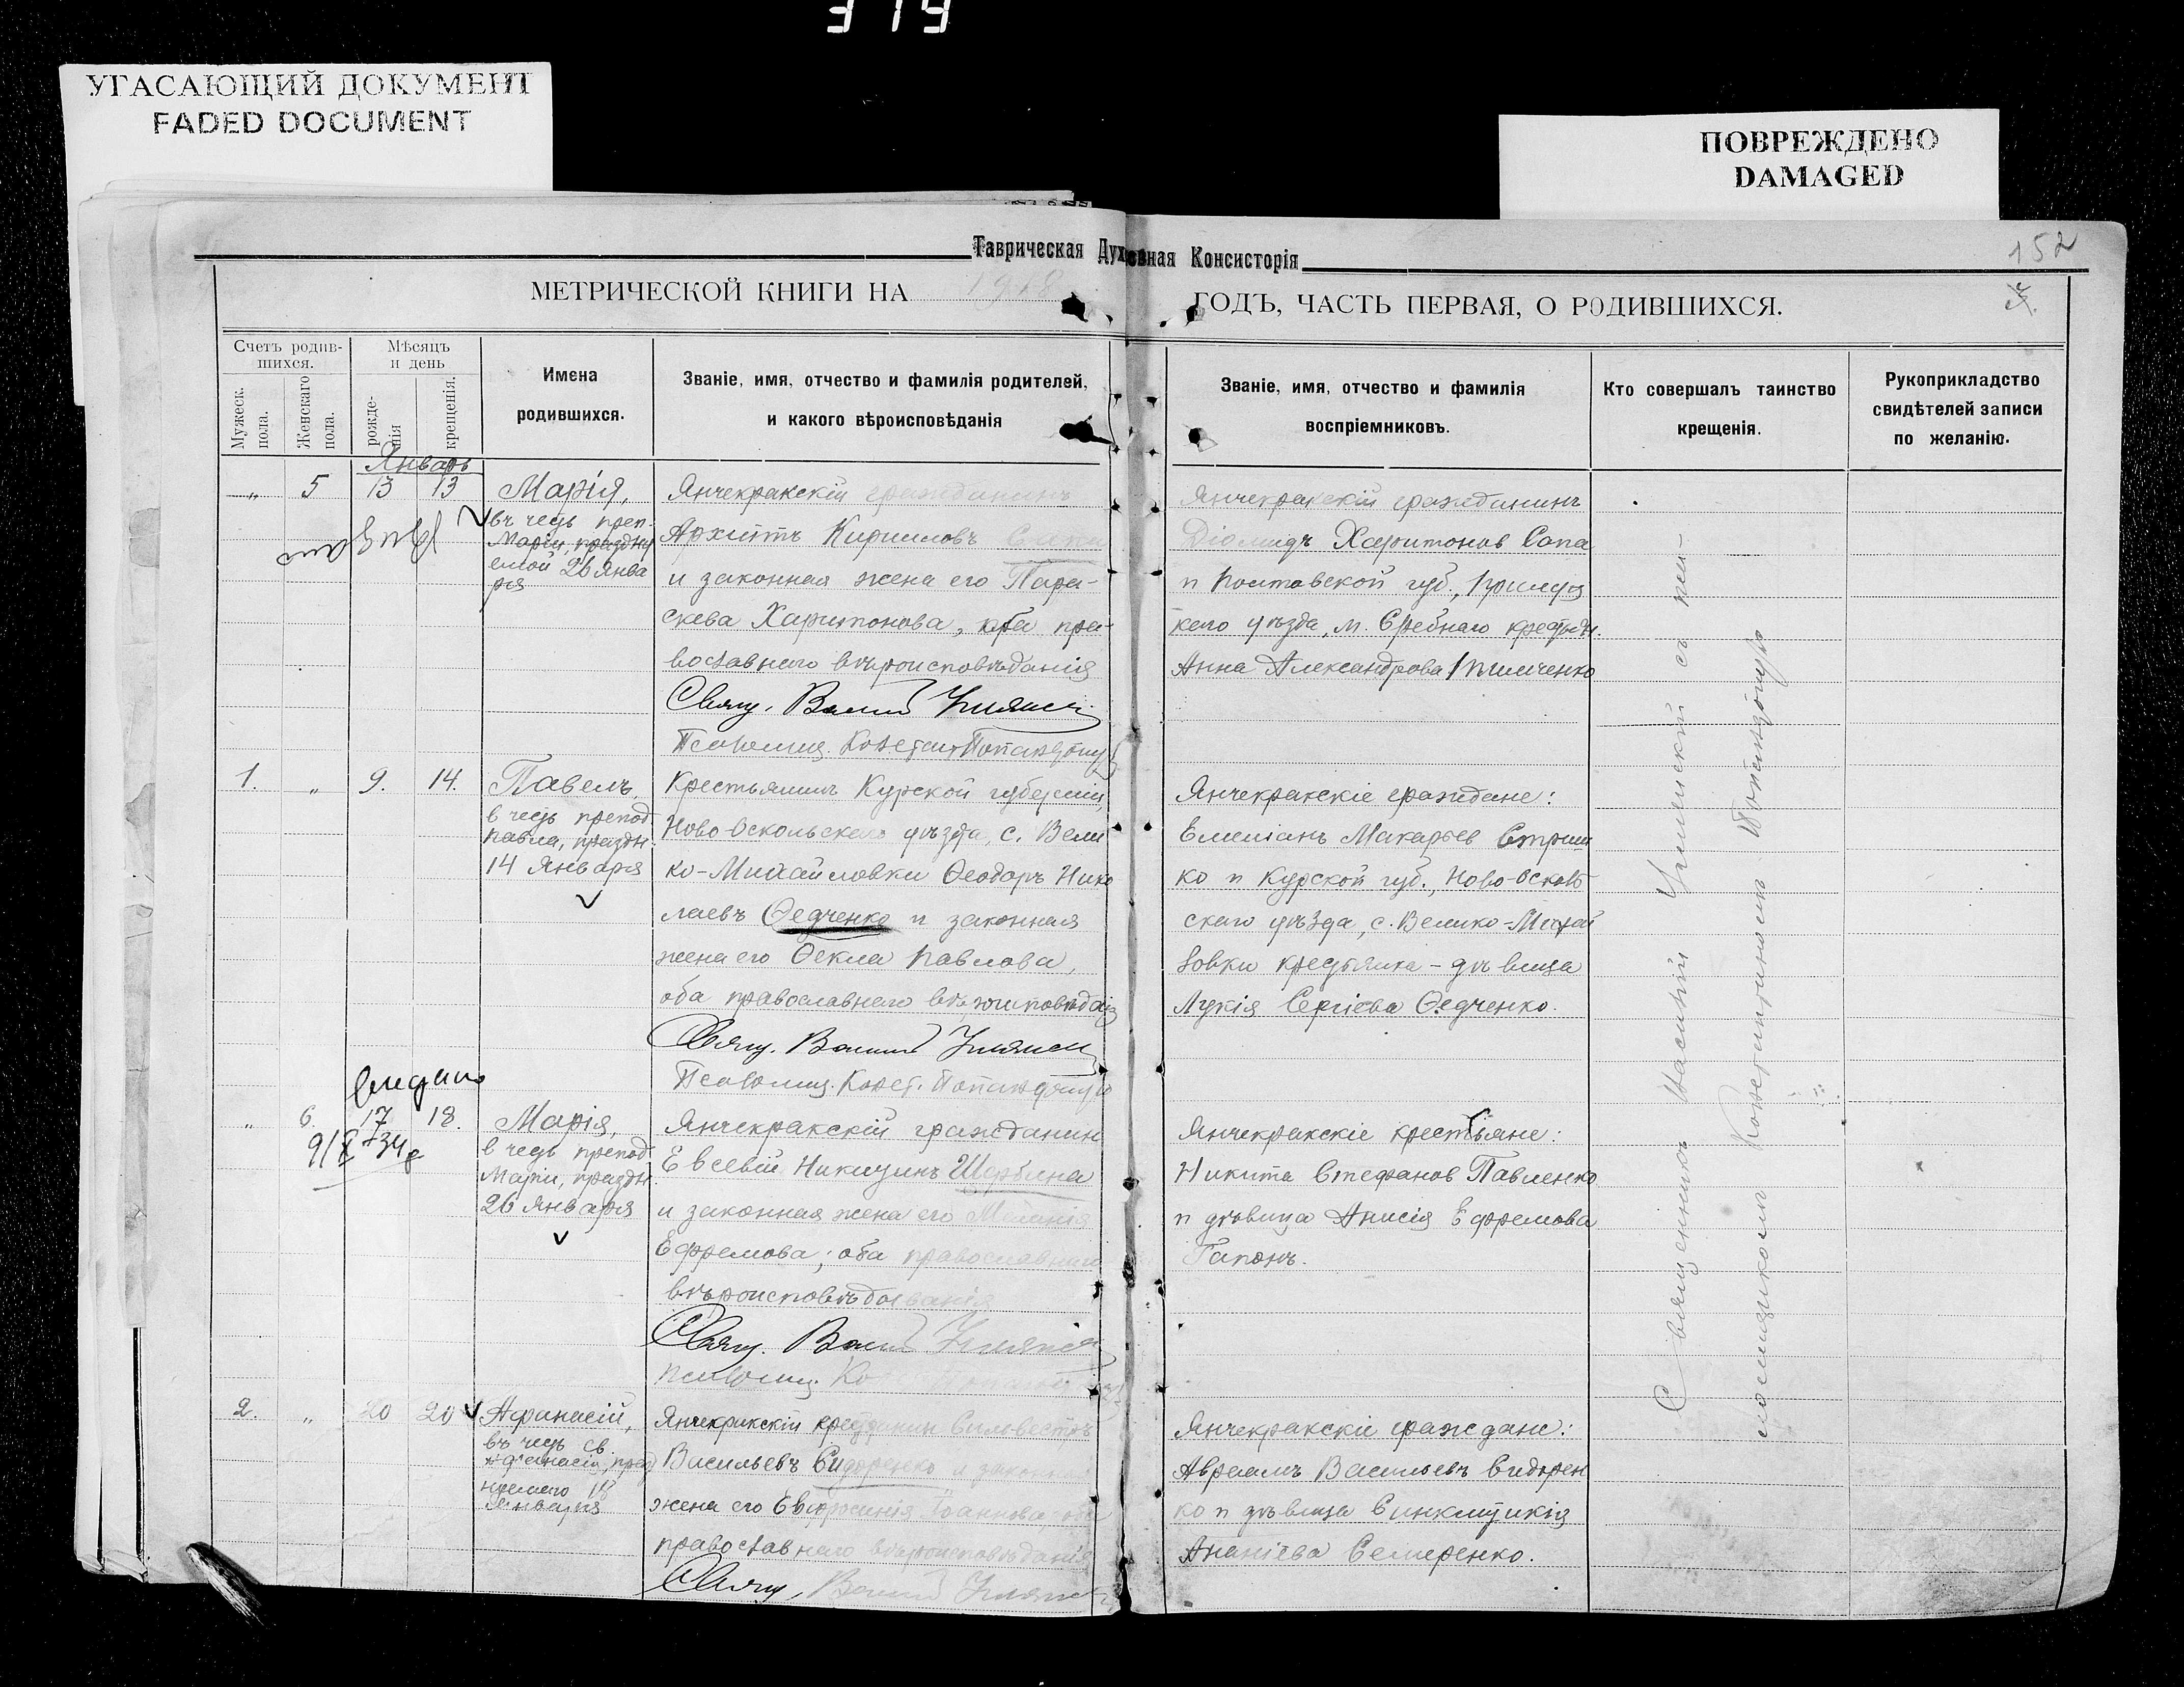 319
УГАСАЮЩИЙ ДОКУМЕНТ
FADED DOCUMENT
ПОВРЕЖДЕНО
DAMAGED
Таврическая Духовная Консисторія
152
МЕТРИЧЕСКОЙ КНИГИ НА 1918 ГОДЪ, ЧАСТЬ ПЕРВАЯ, О РОДИВШИХСЯ.
Счетъ родив-
шихся.
Мужеск.
пола.
Женскаго
пола.
Мѣсяцъ
и день
рожде-
нія
крещенія.
Имена
родившихся.
Званіе, имя, отчество и фамилія родителей,
и какого вѣроисповѣданія
Званіе, имя, отчество и фамилія
воспріемниковъ.
Кто совершалъ таинство
крещенія.
Рукоприкладство
свидѣтелей записи
по желанію.
Январь
„ 5 13 13
Марія,
въ честь преп.
Маріи, праздну
емой 26 Янва
ря
Янчекракскій гражданинъ
Архиппъ Кирилловъ
и законная жена его Пара-
скева Харитонова, оба пра-
вославнаго вѣроисповѣданія
Свящ.
Псаломщ. Констант
Янчекракскій гражданинъ
Діомидъ Харитонов Сапа
и Полтавской губ., Прилуц
каго уѣзда, м. Сребнаго крестьян.
Анна Александрова
1. „ 9. 14.
Павелъ,
в честь препод.
Павла, праздн.
14 Января
Крестьянинъ Курской губерніи,
Ново-Оскольскаго уѣзда, с. Вели
ко-Михайловки Ѳеодоръ Нико
лаевъ Ѳедченко и законная
жена его Ѳекла Павлова,
оба православнаго вѣроисповѣданія
Свящ.
Псаломщ. Конст.
Янчекракскіе граждане:
Емеліанъ Макарьев Стриш
ко и Курской губ., Ново-Осколь
скаго уѣзда, с. Велико-Михай
ловки крестьянка - дѣвица
Лукія Сергіева Ѳедченко.
„ 6. 17 18.
9/X 34 г
Марія,
в честь препод.
Маріи, праздн.
26 Января
Янчекракскій гражданин
Евсевій Никитинъ Щербина
и законная жена его Меланія
Ефремова; оба православнаго
вѣроисповѣданія
Свящ.
Псаломщ.
Янчекракскіе крестьяне:
Никита Стефанов Павленко
и дѣвица Анисія Ефремова
Гапонъ.
2. „ 20 20
Афанасій,
въ честь св.
Афанасія,
18
Января
Янчекракскій гражданин Сильвестръ
Васильевъ Сидоренко и закон
жена его Евфросинія Іоаннова, оба
православнаго вѣроисповѣданія
Свящ.
Янчекракскіе граждане:
Авраамъ Васильевъ Сидорен
ко и дѣвица Синклитикія
Ананіева Семеренко.
Священникъ Василій
псаломщикомъ Константиномъ